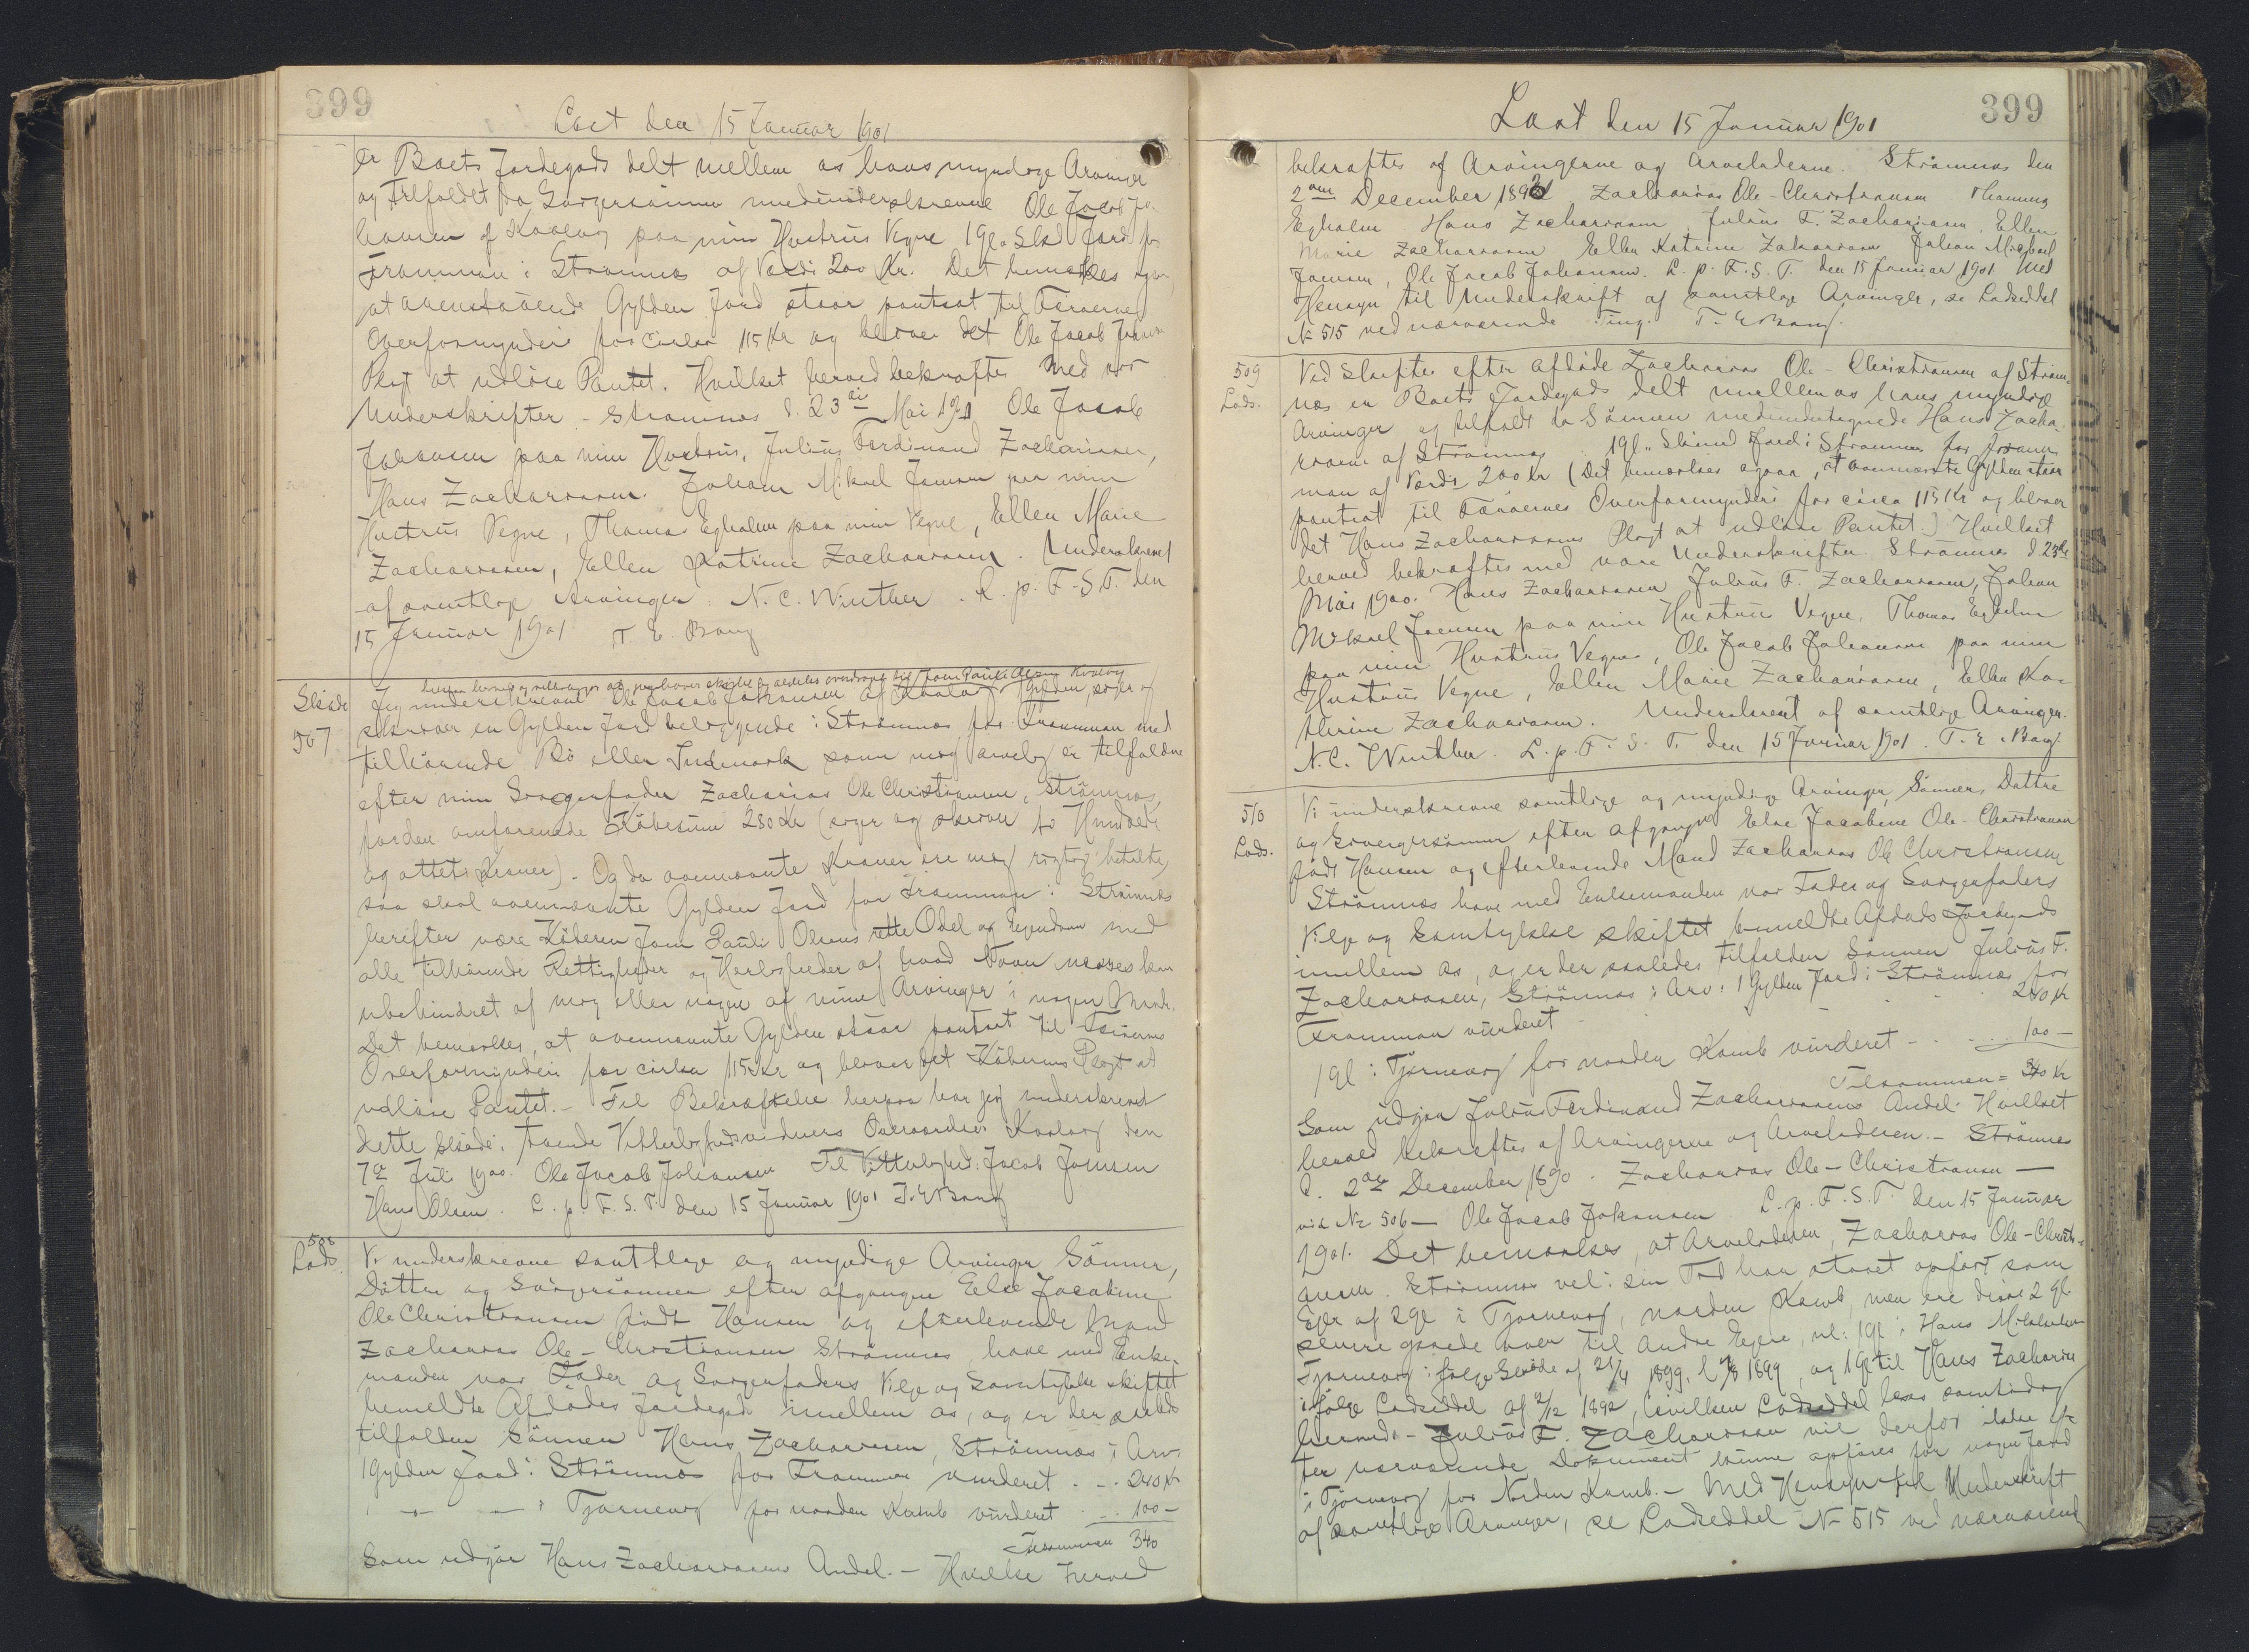 399
Læst den 15 Januar 1901
er Boets Jordegods delt mellem os hans myndige Arvinger
og tilfaldet da Svigersønnen medunderskrevne Ole Jacob Jo-
hansen af Kvalvig paa min Hustrus Vegne 1 gl. Skd Jord for
Framman i Strømnæs af Værdi 200 Kr. Det bemærkes ogsaa,
at ovenstaaende Gylden Jord staar pantsat til Færøernes
Overformynderi for cirka 115 Kr og bliver det Ole Jacob Johansens
Pligt at udløse Pantet. Hvilket herved bekræftes med vor
Underskrifter - Strømnæs d. 23de Mai 1900 Ole Jacob
Johansen paa min Hustrus, Julius Ferdinand Zachariasen,
Hans Zachariasen. Johan Mikael Joensen paa min
Hustrus Vegne, Thomas Egholm paa min Vegne, Ellen Marie
Zachariasen, Ellen Katrine Zachariasen. Underskrevet
af samtlige Arvinger. N. C. Winther. L. p. F. S. T. den
15 Januar 1901 T. E. Bang
Skøde
507
herved og vitterliggør at jeg haver skjødet og aldeles overdraget til Joen Pauli Olsen Kvalvig
Jeg underskrevne Ole Jacob Johansen af Kvalvig 1 Gylden, siger og
skriver en Gylden Jord beliggende i Strømnæs for Frammen med
tilhørende Bø eller Indmark som mig arvelig er tilfalden
efter min Svigerfader Zacharias Ole Christiansen, Strømnæs,
for den omforenede Købesum 280 Kr (siger og skriver to Hundrede
og otteti Kroner). Og da ovennævnte Kroner ere mig rigtig betalte,
saa skal ovennævnte Gylden Jord for Framman i Strømnæs
herefter være Køberen Joen Pauli Olsens rette Odel og Ejendom med
alle tilhørende Rettigheder og Herligheder af hvad Navn nævnes kan
ubehindret af mig eller nogen af mine Arvinger i nogen Maade.
Det bemærkes, at ovennævnte Gylden staar pantsat til Færøernes
Overformynderi for cirka 115 Kr og bliver det Køberens Pligt at
udløse Pantet. - Til Bekræftelse herpaa har jeg underskrevet
dette Skøde i tvende Vitterlighedsvidners Overværelse. Kvalvig den
7de Juli 1900. Ole Jacob Johansen Til Vitterlighed: Jacob Joensen
Hans Olsen. L. p. F. S. T. den 15 Januar 1901 T. E. Bang
508
Lods.
Vi underskrevne samtlige og myndige Arvinger Sønner,
Døttre og Svigersønner efter afgangne Else Jacobine
Ole Christiansen født Hansen og efterlevende Mand
Zacharias Ole-Christiansen Strømnæs have med Enke-
manden vor Fader og Svigerfaders Vilje og Samtykke skiftet
bemeldte Afdødes Jordegods imellem os, og er der saaledes
tilfalden Sønnen Hans Zachariasen, Strømnæs i Arv:
1 Gylden Jord i Strømnæs for Frammen vurderet . . . 240 Kr
1 - - i Tjørnevig for norden Kamb vurderet . . . 100 -
Tilsammen 340
Som udgør Hans Zachariasens Andel. - Hvilket herved
Læst den 15 Januar 1901
399
bekræftes af Arvingerne og Arveladerne. Strømnæs den
2den December 1892 Zacharias Ole-Christiansen Thomas
Egholm Hans Zachariasen, Julius F. Zachariasen, Ellen
Marie Zachariasen Ellen Katrine Zakariasen Johan Michael
Joensen, Ole Jacob Johansen. L. p. F. S. T. den 15 Januar 1901 Med
Hensyn til Underskrift af samtlige Arvinger, se Lodseddel
№ 515 ved nærværende Ting. T. E. Bang.
509
Lods.
Ved Skifte efter afdøde Zacharias Ole-Christiansen af Strøm-
næs er Boets Jordegods delt mellem os hans myndige
Arvinger og tilfaldt da Sønnen medundertegnede Hans Zacha-
riasen af Strømnæs 1 gl. Skind Jord i Strømnæs for fram-
man af Værdi 200 Kr (Det bemærkes ogsaa, at ovennævnte Gylden staar
pantsat til Færøernes Overformynderi for circa 115 Kr og bliver
det Hans Zachariasens Pligt at udløse Pantet.) Hvilket
herved bekræftes med vore Underskrifter. Strømnæs d. 23de
Mai 1900. Hans Zachariasen Julius F. Zachariasen, Johan
Mikael Joensen paa min Hustrus Vegne, Thomas Egholm
paa min Hustrus Vegne, Ole Jacob Johansen paa min
Hustrus Vegne, Ellen Marie Zachariasen, Ellen Ka-
thrine Zachariasen. Underskrevet af samtlige Arvinger.
N. C. Winther. L. p. F. S. T. den 15 Januar 1901. T. E. Bang.
510
Lods.
Vi underskrevne samtlige og myndige Arvinger, Sønner, Døttre
og Svigersønner efter afgangne Else Jacobine Ole-Christiansen
født Hansen og efterlevende Mand Zacharias Ole Christiansen
Strømnæs have med Enkemanden vor Fader og Svigerfaders
Vilje og Samtykke skiftet bemeldte Afdøds Jordegods
imellem os, og er der saaledes tilfalden Sønnen Julius F.
Zachariasen, Strømnæs i Arv: 1 Gylden Jord i Strømnæs for
Framman vurderet . . . 240 Kr
1 gl i Tjørnevig for norden Kamb vurderet - . . . . 100 -
Tilsammen = 340 Kr
Som udgjør Julius Ferdinand Zachariasens Andel. Hvilket
herved bekræftes af Arvingerne og Arveladeren. - Strømnæs
d. 2den December 1890. Zacharias Ole-Christiansen -
vid № 506 - Ole Jacob Johansen L. p. F. S. T. den 15 Januar
1901. Det bemærkes, at Arveladeren, Zacharias Ole-Christi-
ansen Strømnæs vel i sin Tid har staaet opført som
Ejer af 2 gl i Tjørnevig, norden Kamb, men ere disse 2 gl
senere gaaede over til andre Ejere, nl: 1 gl i Hans
Tjørnevig i følge Skøde af 21/4 1899, l 7/8 1899, og 1 gl til Hans Zacharias
i følge Lodseddel af 2/12 1892, hvilken Lodseddel læses samtidig
hermed - Julius F. Zachariasen vil derfor ikke ef-
ter nærværende Dokument kunne opføres for nogen Jord
i Tjørnevig for Norden Kamb. - Med Hensyn til Underskrift
af samtlige Arvinger, se Lodseddel № 515 ved nærværende